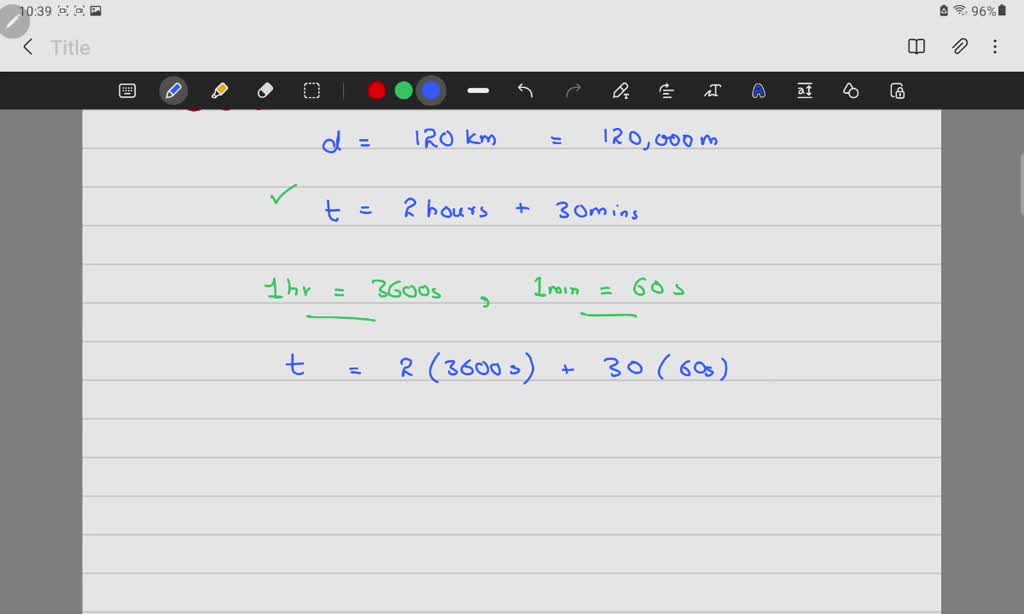 10:39
96%
Title
d = 120 km = 120,000 m
t = 2 hours + 30 mins
1 hr = 3600 s , 1 min = 60 s
t = 2 (3600 s) + 30 (60s)